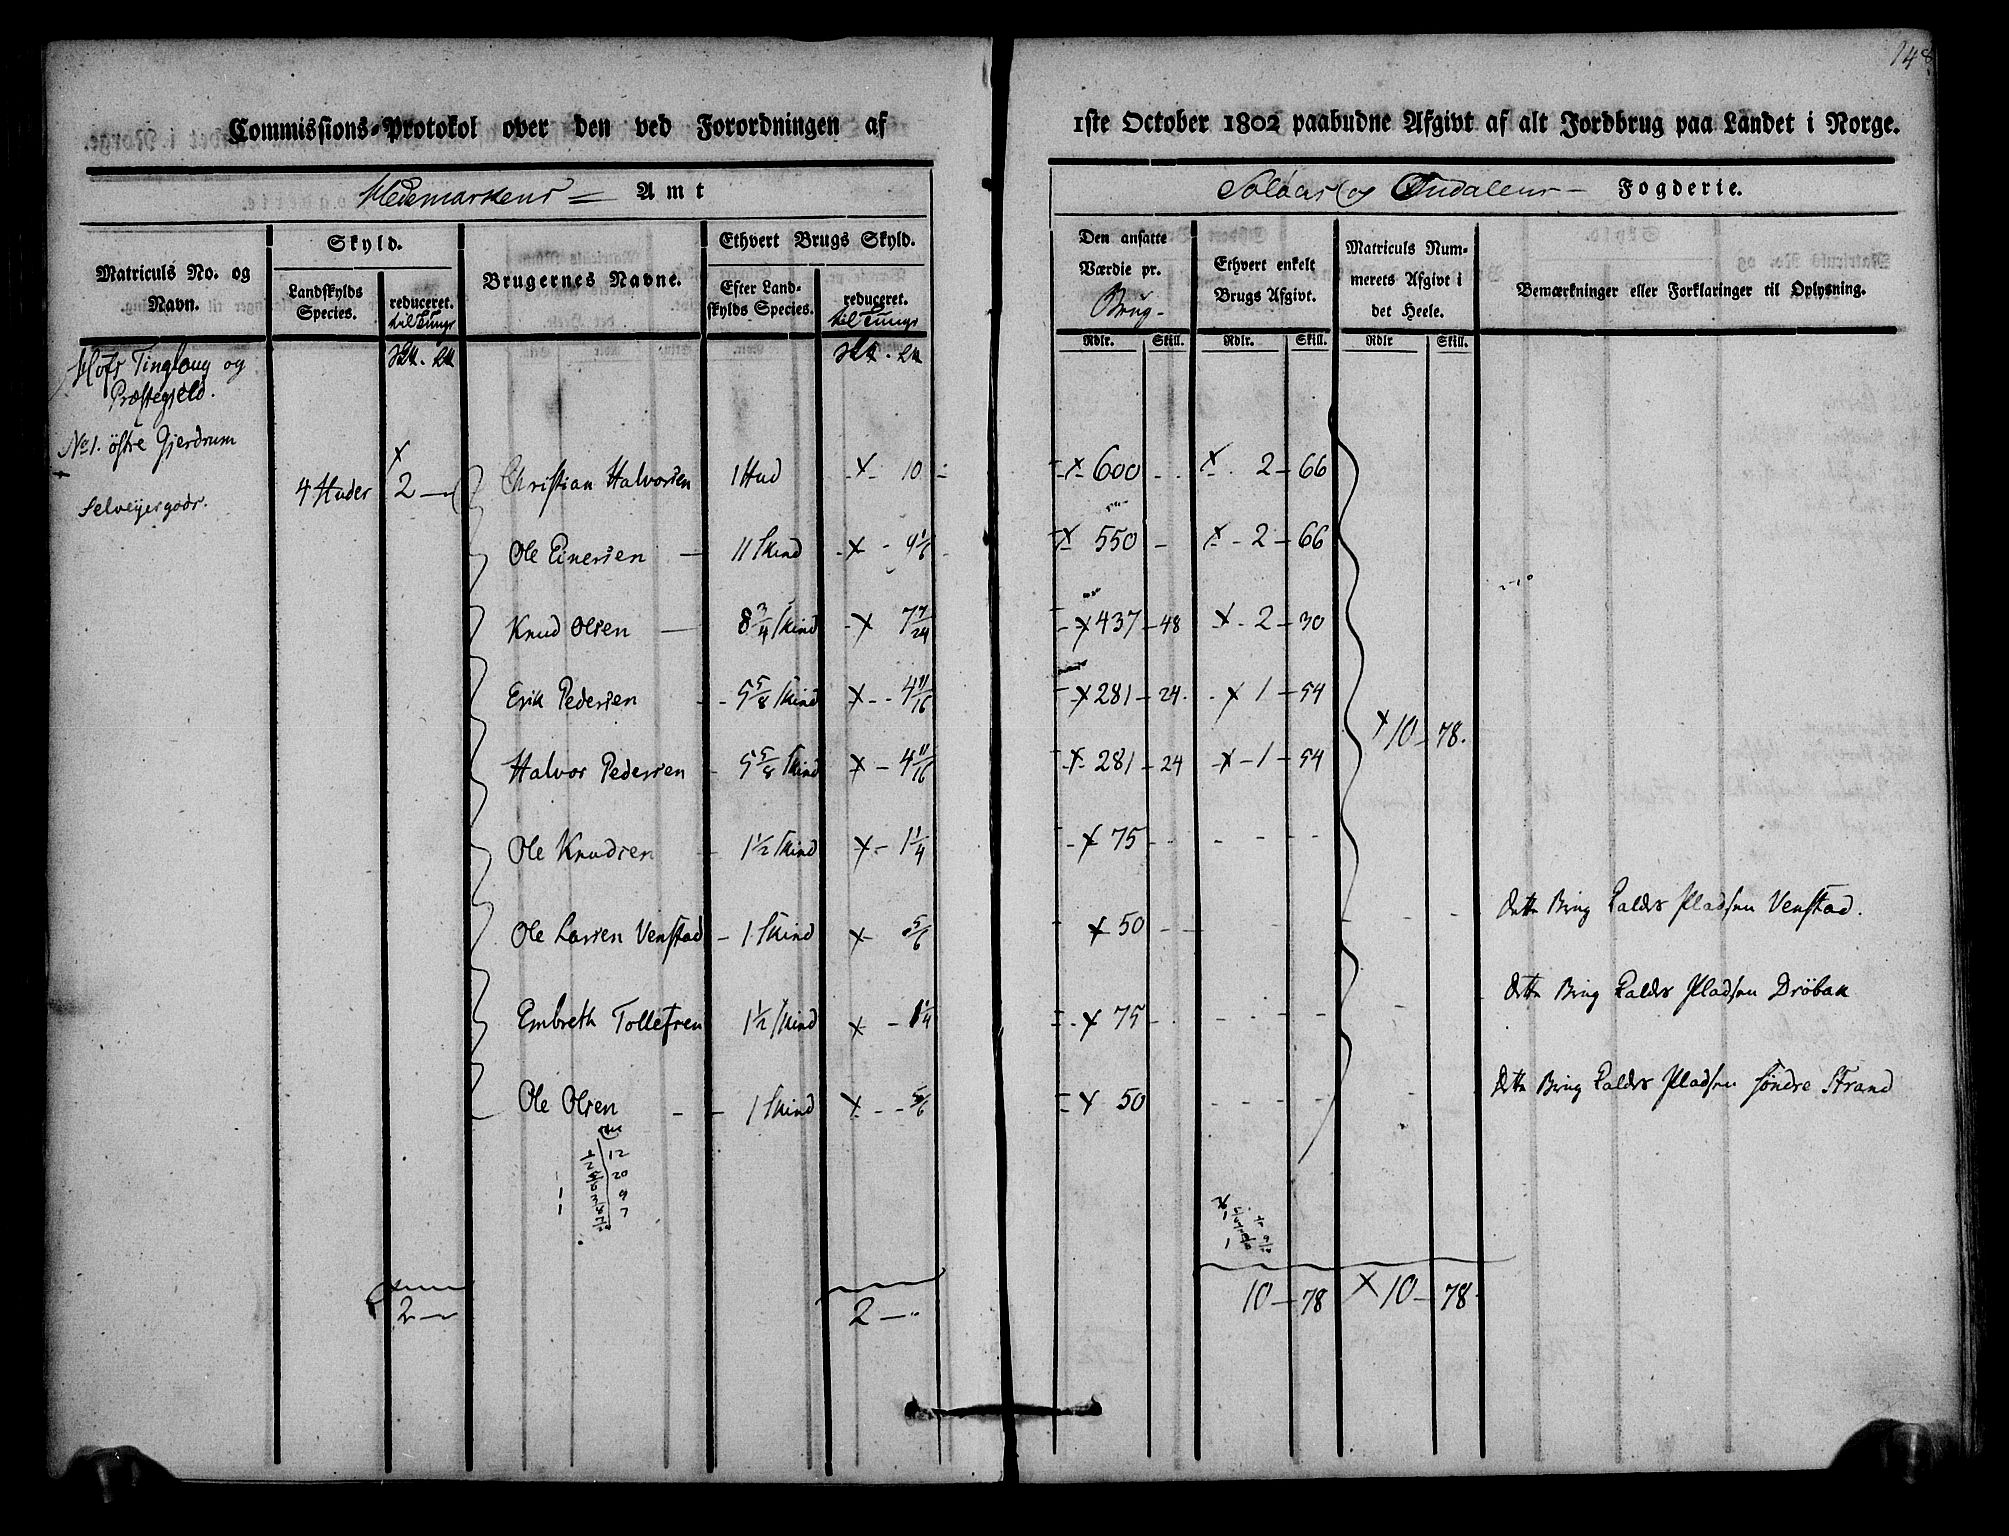 148
Commissions-Protokol over den ved Forordningen af 1ste October 1802 paabudne Afgivt af alt Jordbrug paa Landet i Norge.
Hedemarkens Amt
Soløer og Oudalens Fogderie.
Matriculs No. og Navn.
Skyld.
Landskylds Species.
reduceret. til Tunge
Brugernes Navne.
Ethvert Brugs Skyld.
Efter Landskylds Species.
reduceret. til Tunge
Den ansatte Værdie pr. Brug
Ethvert enkelt Brugs Afgivt.
Matriculs Nummerets Afgivt i det Heele.
Bemærkninger eller Forklaringer til Oplysning.
Rdlr. Skill. Rdlr. Skill. Rdlr Skill.
Hofs Tinglaug og
Præstegjeld.
No 1. østre Gjerdrum
Selveyergods.
4 Huder 2 — Christian Halvorsen 1 Hud 10 600 2 — 66
Ole Einersen 11 Skind 9 1/6 550 2 — 66
Knud Olsen 8 3/4 Skind 7 7/24 437 — 48 2 — 30
Erik Pedersen 5 5/8 Skind 4 11/16 281 — 24 1 — 54
10 — 78.
Halvor Pedersen 5 5/8 Skind 4 11/16 281 — 24 1 — 54
Ole Knudsen 1 1/2 Skind 1 1/4 75
Ole Larsen Venstad 1 Skind 5/6 50 dette Brug kaldes Pladsen Venstad.
Embreth Tollefsen 1 1/2 Skind 1 1/4 75 dette Brug kaldes Pladsen Drøbak
Ole Olsen 1 Skind 5/6 50 dette Brug kaldes Pladsen søndre Strand
12
20
9
7
2 — 2 — 10 — 78 10 — 78